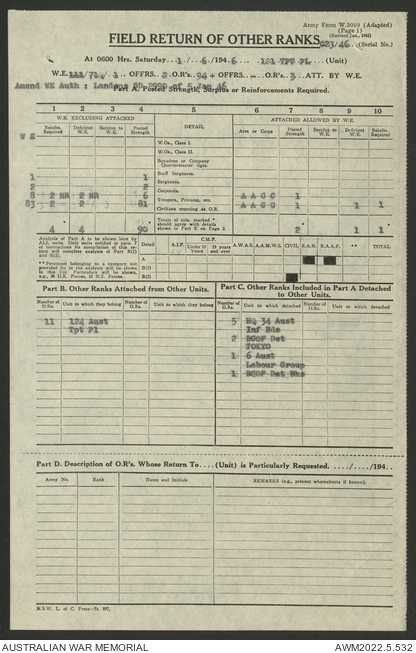 Army Form W.3009 (Adapted)
(Page 1)
(Revised Jan., 1943)
FIELD RETURN OF OTHER RANKS 223/46 (Serial No.)
At 0600 Hrs. Saturday...1.../6/194.6 121 TPT PL (Unit)
W.E. 1 OFFRS. O.R's. 94 + OFFRS. - O.R's. 3 ATT. BY W.E.
Amend WE Auth : of 5 Jan 46
Part A. Posted Strength, Surplus or Reinforcements Required.
1 2 3 4 5 6 7 8 9 10
W.E. EXCLUDING ATTACHED DETAIL ATTACHED ALLOWED BY W.E.
Reinfts. Required Deficient W.E. Surplus to W.E. Posted Strength Arm or Corps Posted Strength Surplus to W.E. Deficient W.E. Reinfts. Required
W E
W.Os., Class I.
W.Os., Class II.
Squadron or Company Quartermaster Sgts.
1 1 Staff Sergeants.
2 2 Sergeants.
8 2 NR 2 NR 6 Corporals. A A C C 1
83 2 2 81 Troopers, Privates, etc. A A C C 1 1 1
Civilians counting as O.R.
4 4 90 Totals of cols. marked * should agree with details shown in Part E on Page 2. 2 1 1
Analysis of Part A to be shown here by ALL units. Only units notified in para. 7 of instructions for compilation of this return will complete analysis of Part B(i) and B(ii).
** Personnel belonging to a category not provided for in the analysis will be shown in this Col. Particulars will be shown, e.g., U.K. Forces, N.Z. Forces.
Detail A.I.F. C.M.F. Under 19 Years 19 Years and over A.W.A.S. A.A.M.W.S. CIVIL R.A.N. R.A.A.F. ** TOTAL
A
B(i)
B(ii)
Part B. Other Ranks Attached from Other Units.
Part C. Other Ranks Included in Part A Detached to Other Units.
Number of O.Rs. Unit to which they belong Number of O.Rs. Unit to which they belong
Number of O.Rs. Unit to which detached Number of O.Rs. Unit to which detached
11 124 Aust
Tpt Pl
5 Hq 34 Aust
Inf Bde
2 BCOF Det
TOKYO
1 6 Aust
Labour Group
1 BCOF Det
Part D. Description of O.R's. Whose Return To....(Unit) is Particularly Requested...../...../194..
Army No. Rank Name and Initials REMARKS (e.g., present whereabouts if known).
AUSTRALIAN WAR MEMORIAL AWM2022.5.532